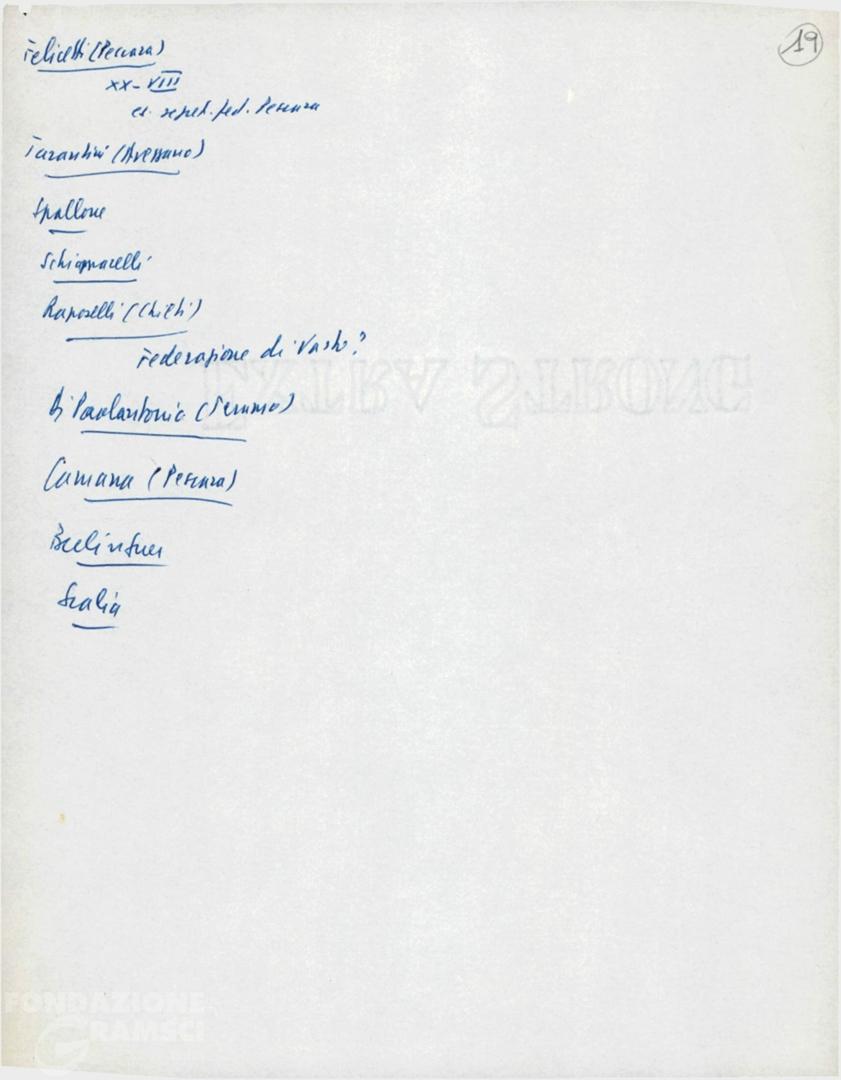 19
Felicetti (Pescara)
XX-VIII
es. segret. fed. Pescara
Tarantini (Avezzano)
Spallone
Raposelli (Chieti)
Federazione di Vasto?
Di Paolantonio (Teramo)
Camana (Pescara)
Berlinguer
Scalia
EXTRA STRONG
FONDAZIONE
GRAMSCI